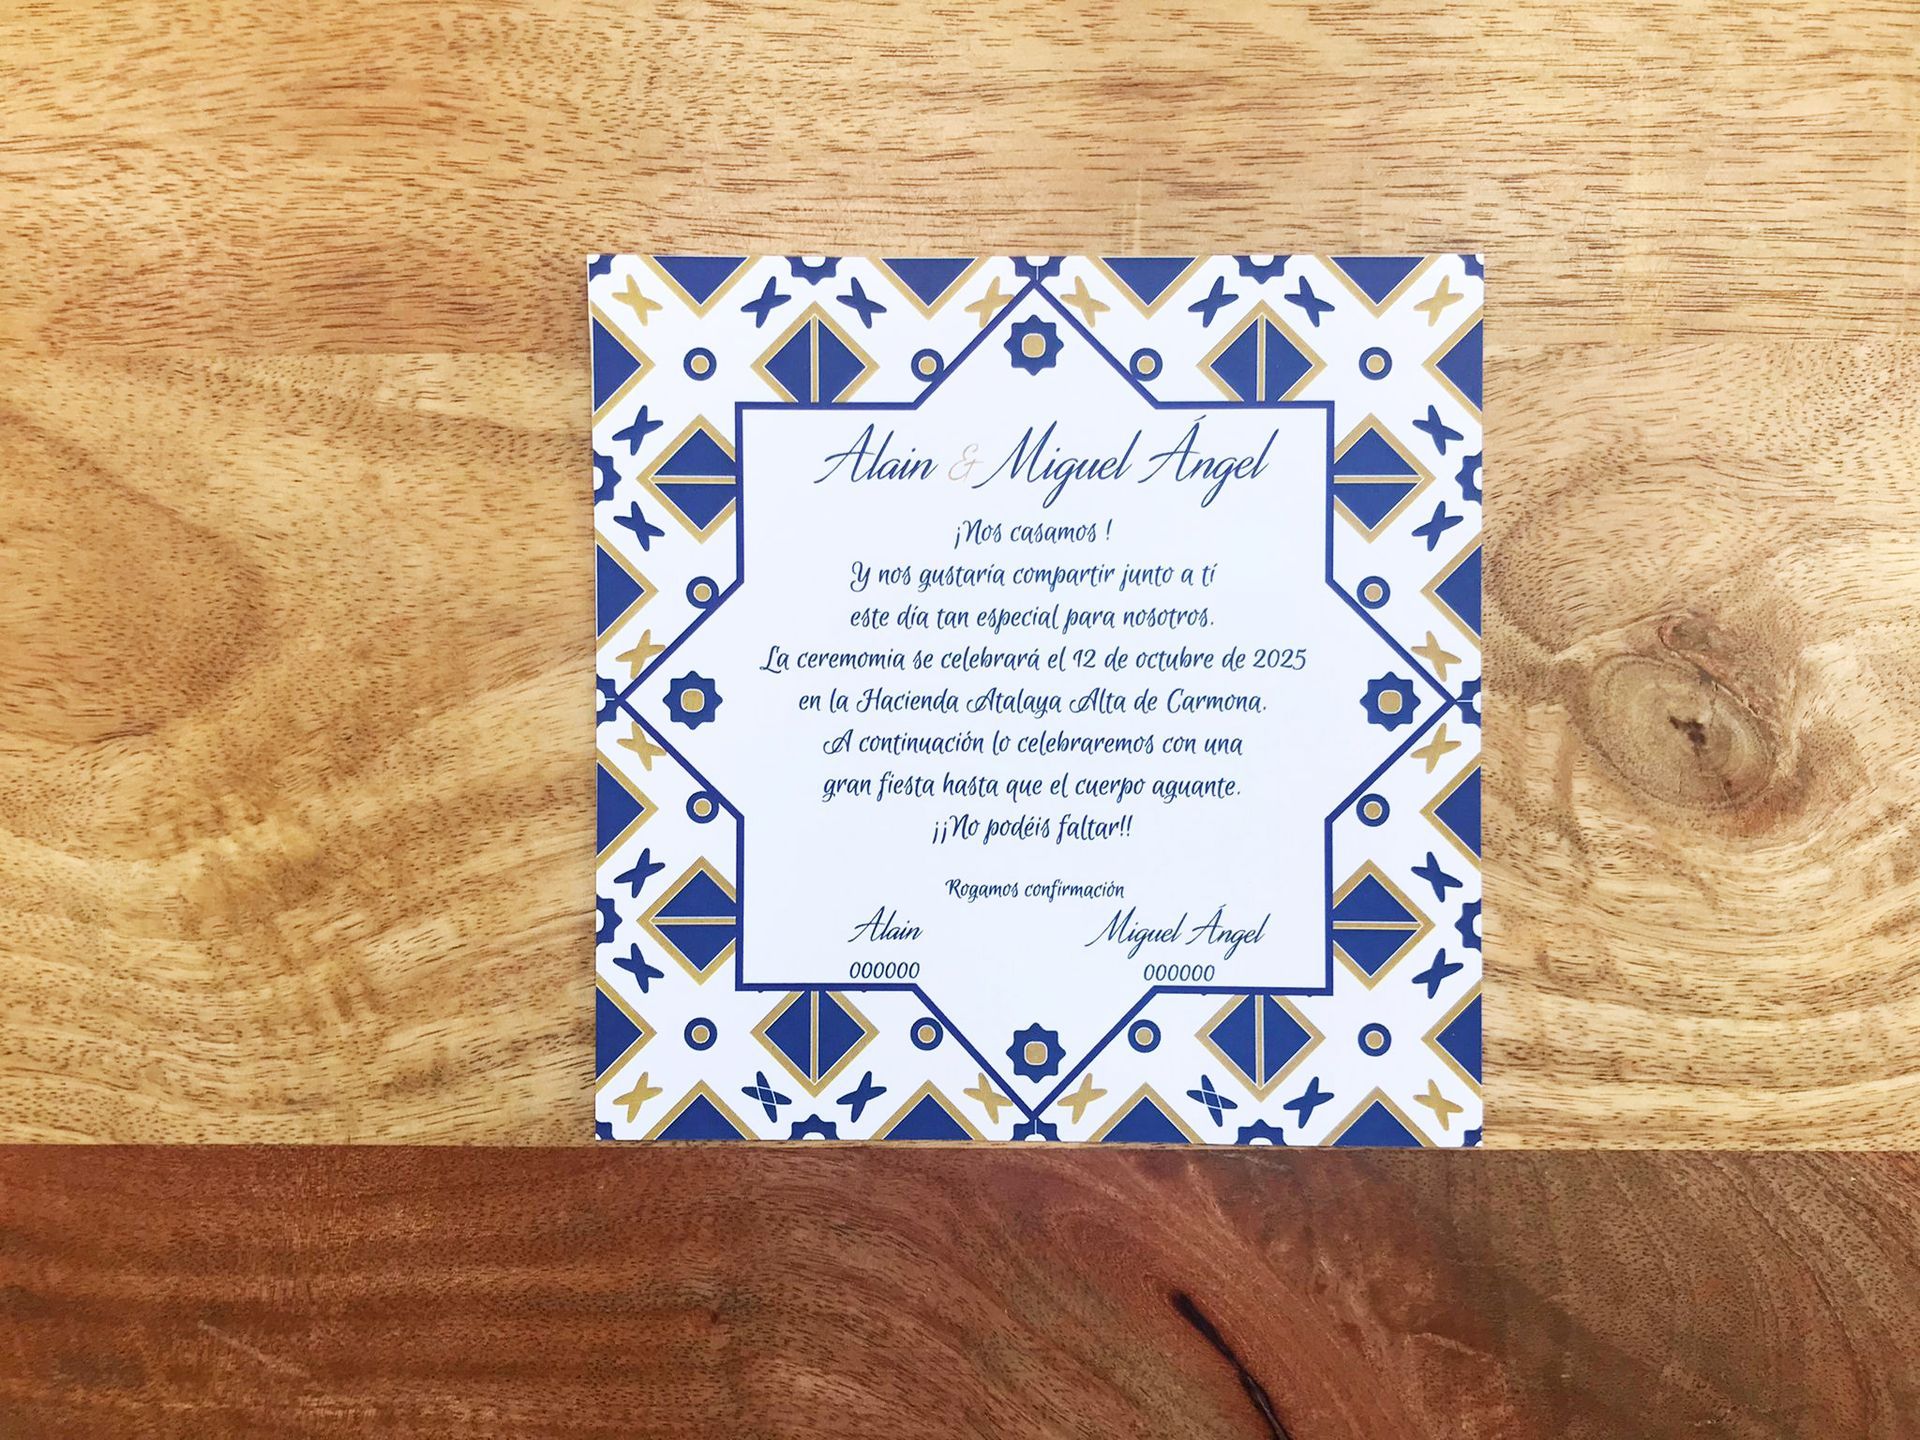 Alain & Miguel Ángel
¡Nos casamos !
Y nos gustaría compartir junto a tí
este día tan especial para nosotros.
La ceremomia se celebrará el 12 de octubre de 2025
en la Hacienda Atalaya Alta de Carmona.
A continuación lo celebraremos con una
gran fiesta hasta que el cuerpo aguante.
¡¡No podéis faltar!!
Rogamos confirmación
Alain Miguel Ángel
000000 000000